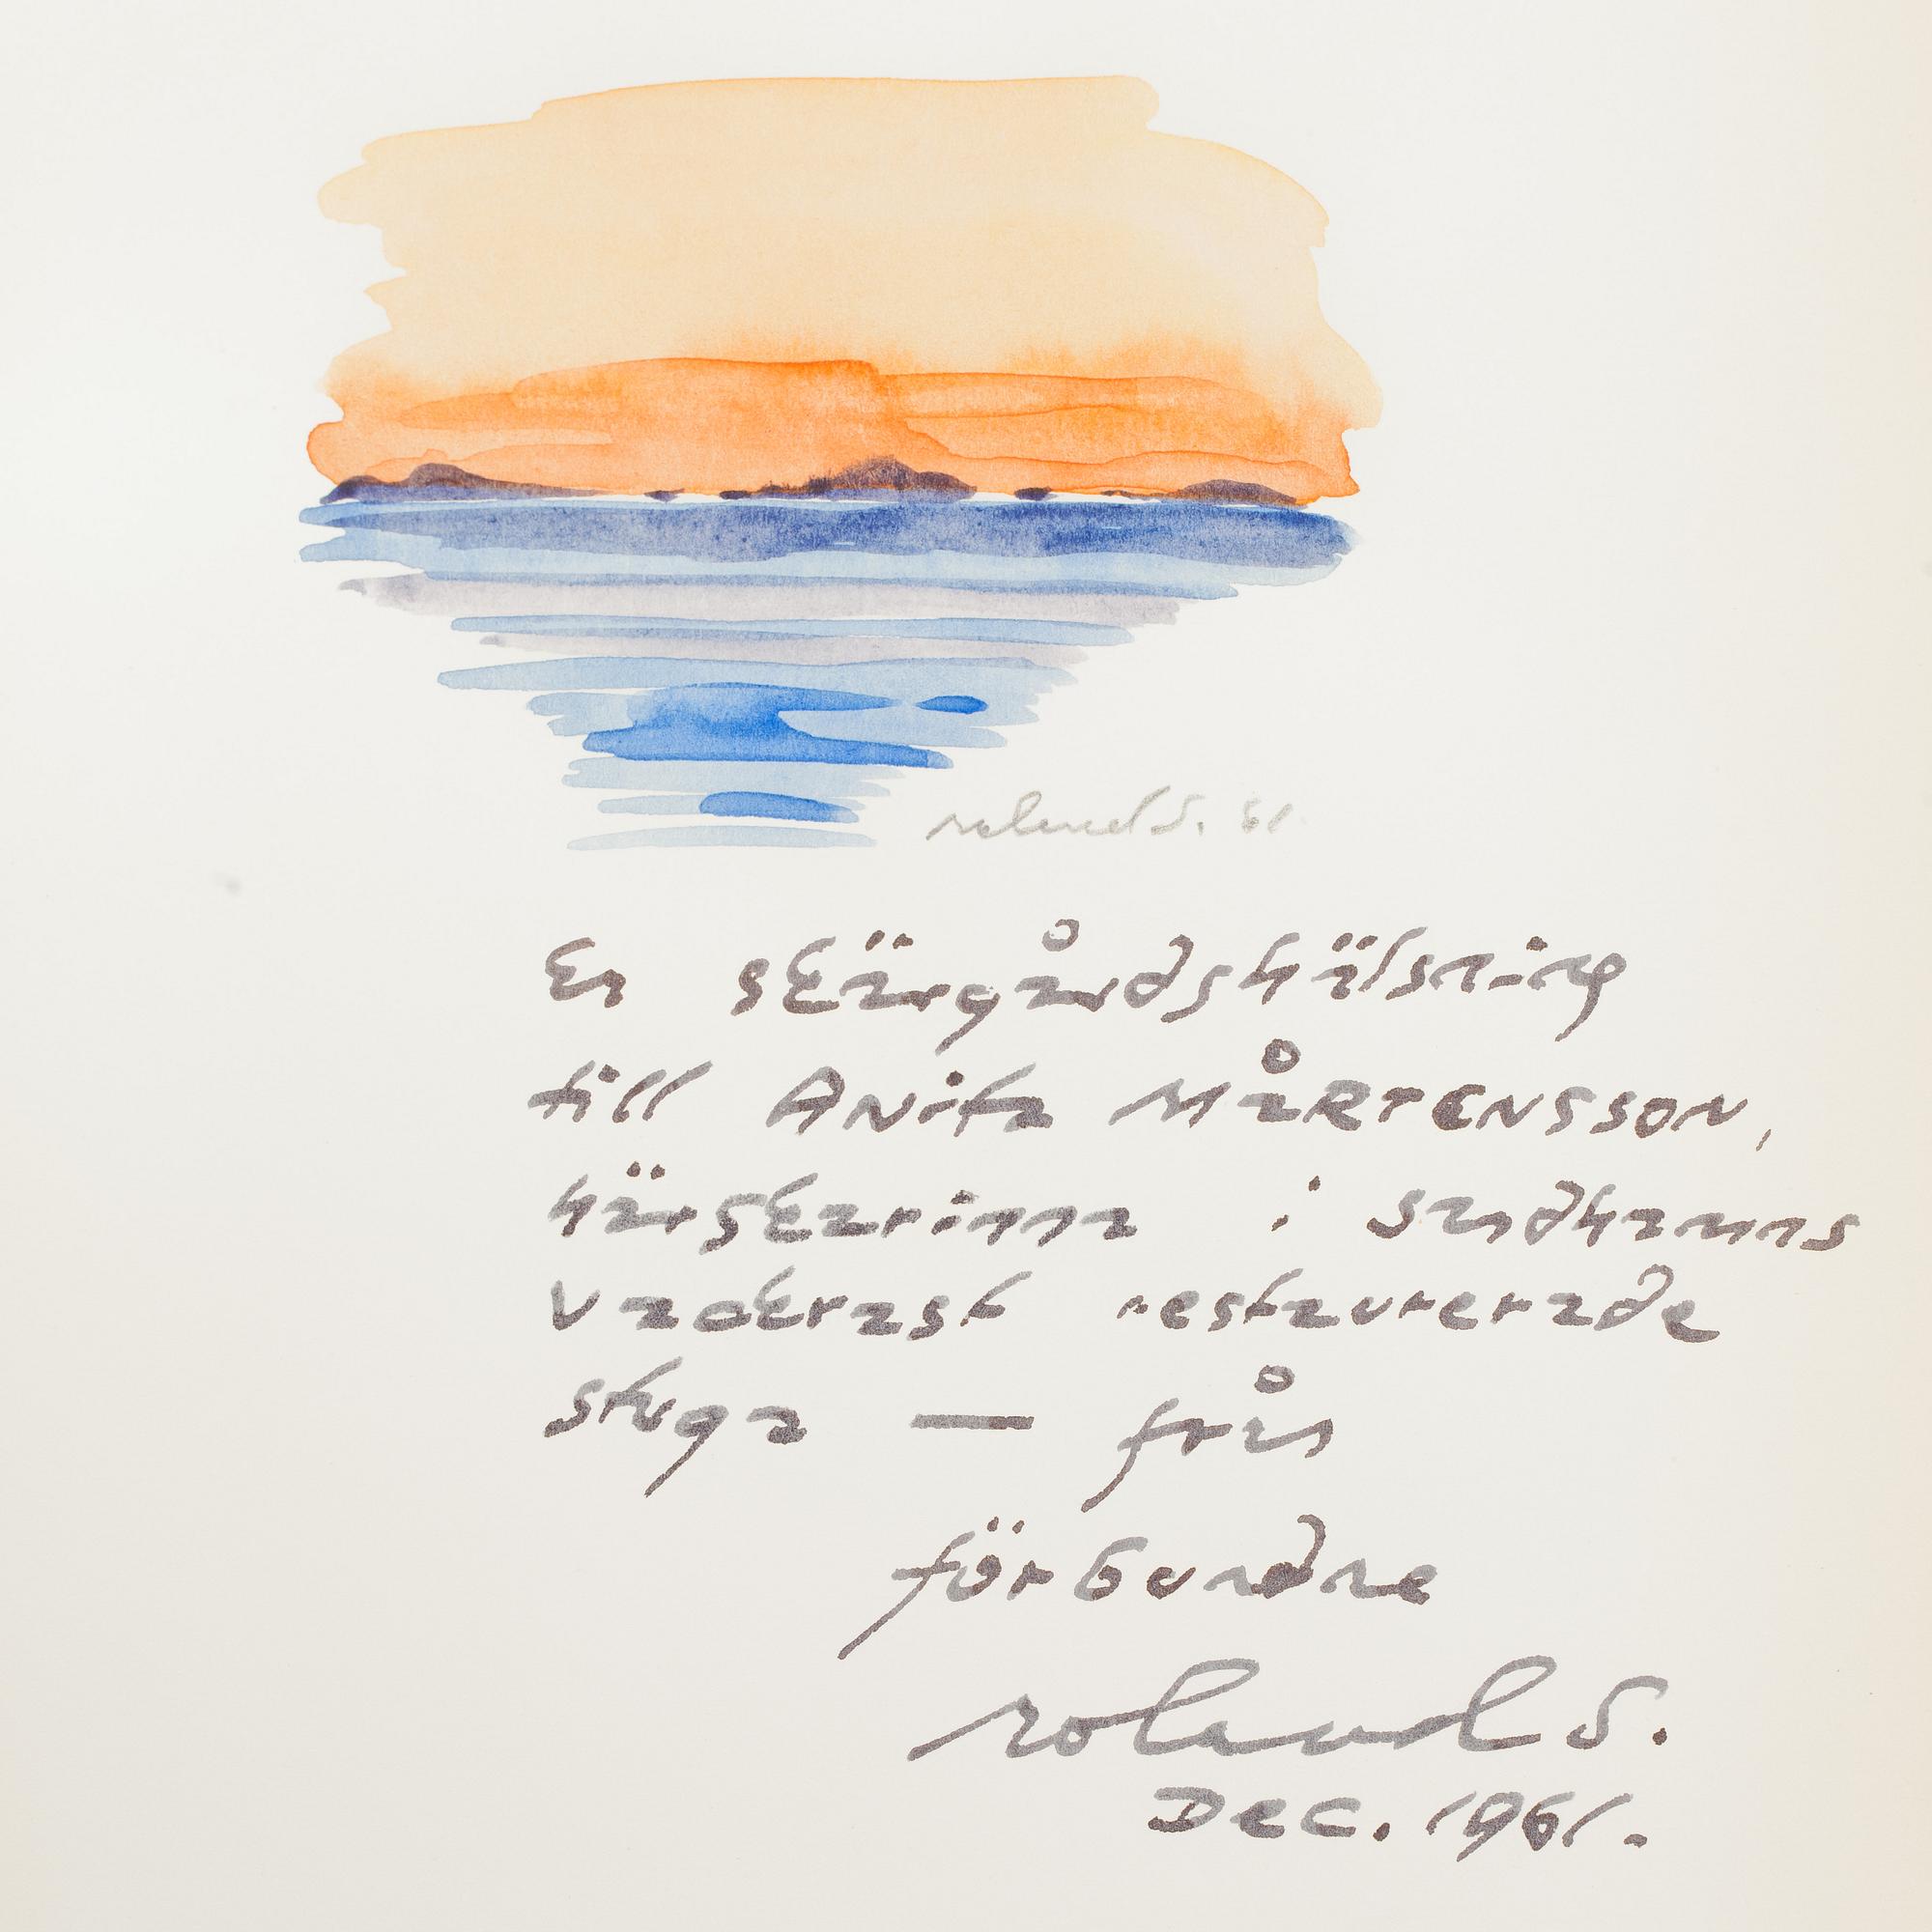 roland S. 61
En skärgårdshälsning
till Anita MÅRTENSSON,
härskarinna i sandhamns
vackrast restaurerade
stuga — från
förbundne
roland S.
Dec. 1961.